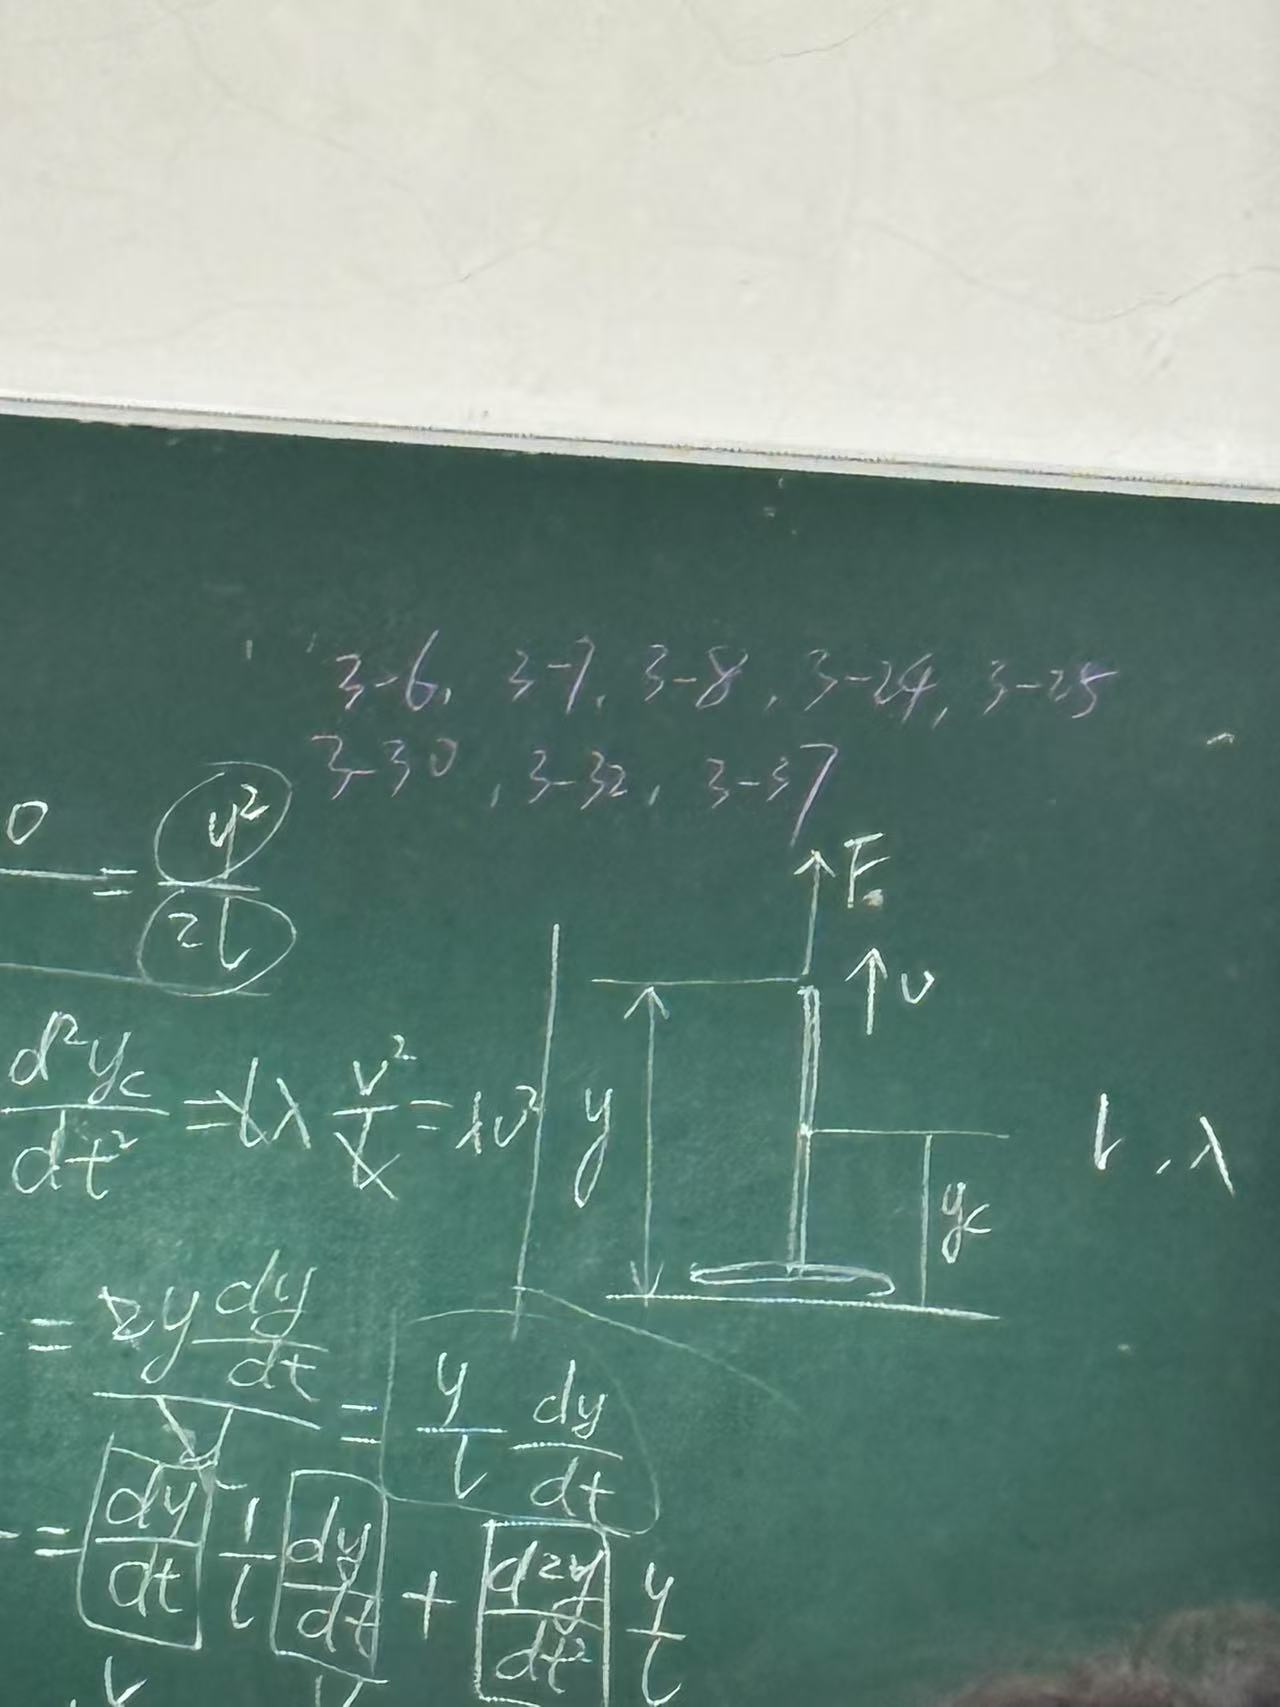 3-6, 3-7, 3-8, 3-24, 3-25
3-30, 3-32, 3-37
0
= y²/2l
F
v
d²y_c/dt² = lλ v²/l = λv²
y
l, λ
y_c
= 2y dy/dt / = y/l dy/dt
= dy/dt 1/l dy/dt + d²y/dt² y/l
v v